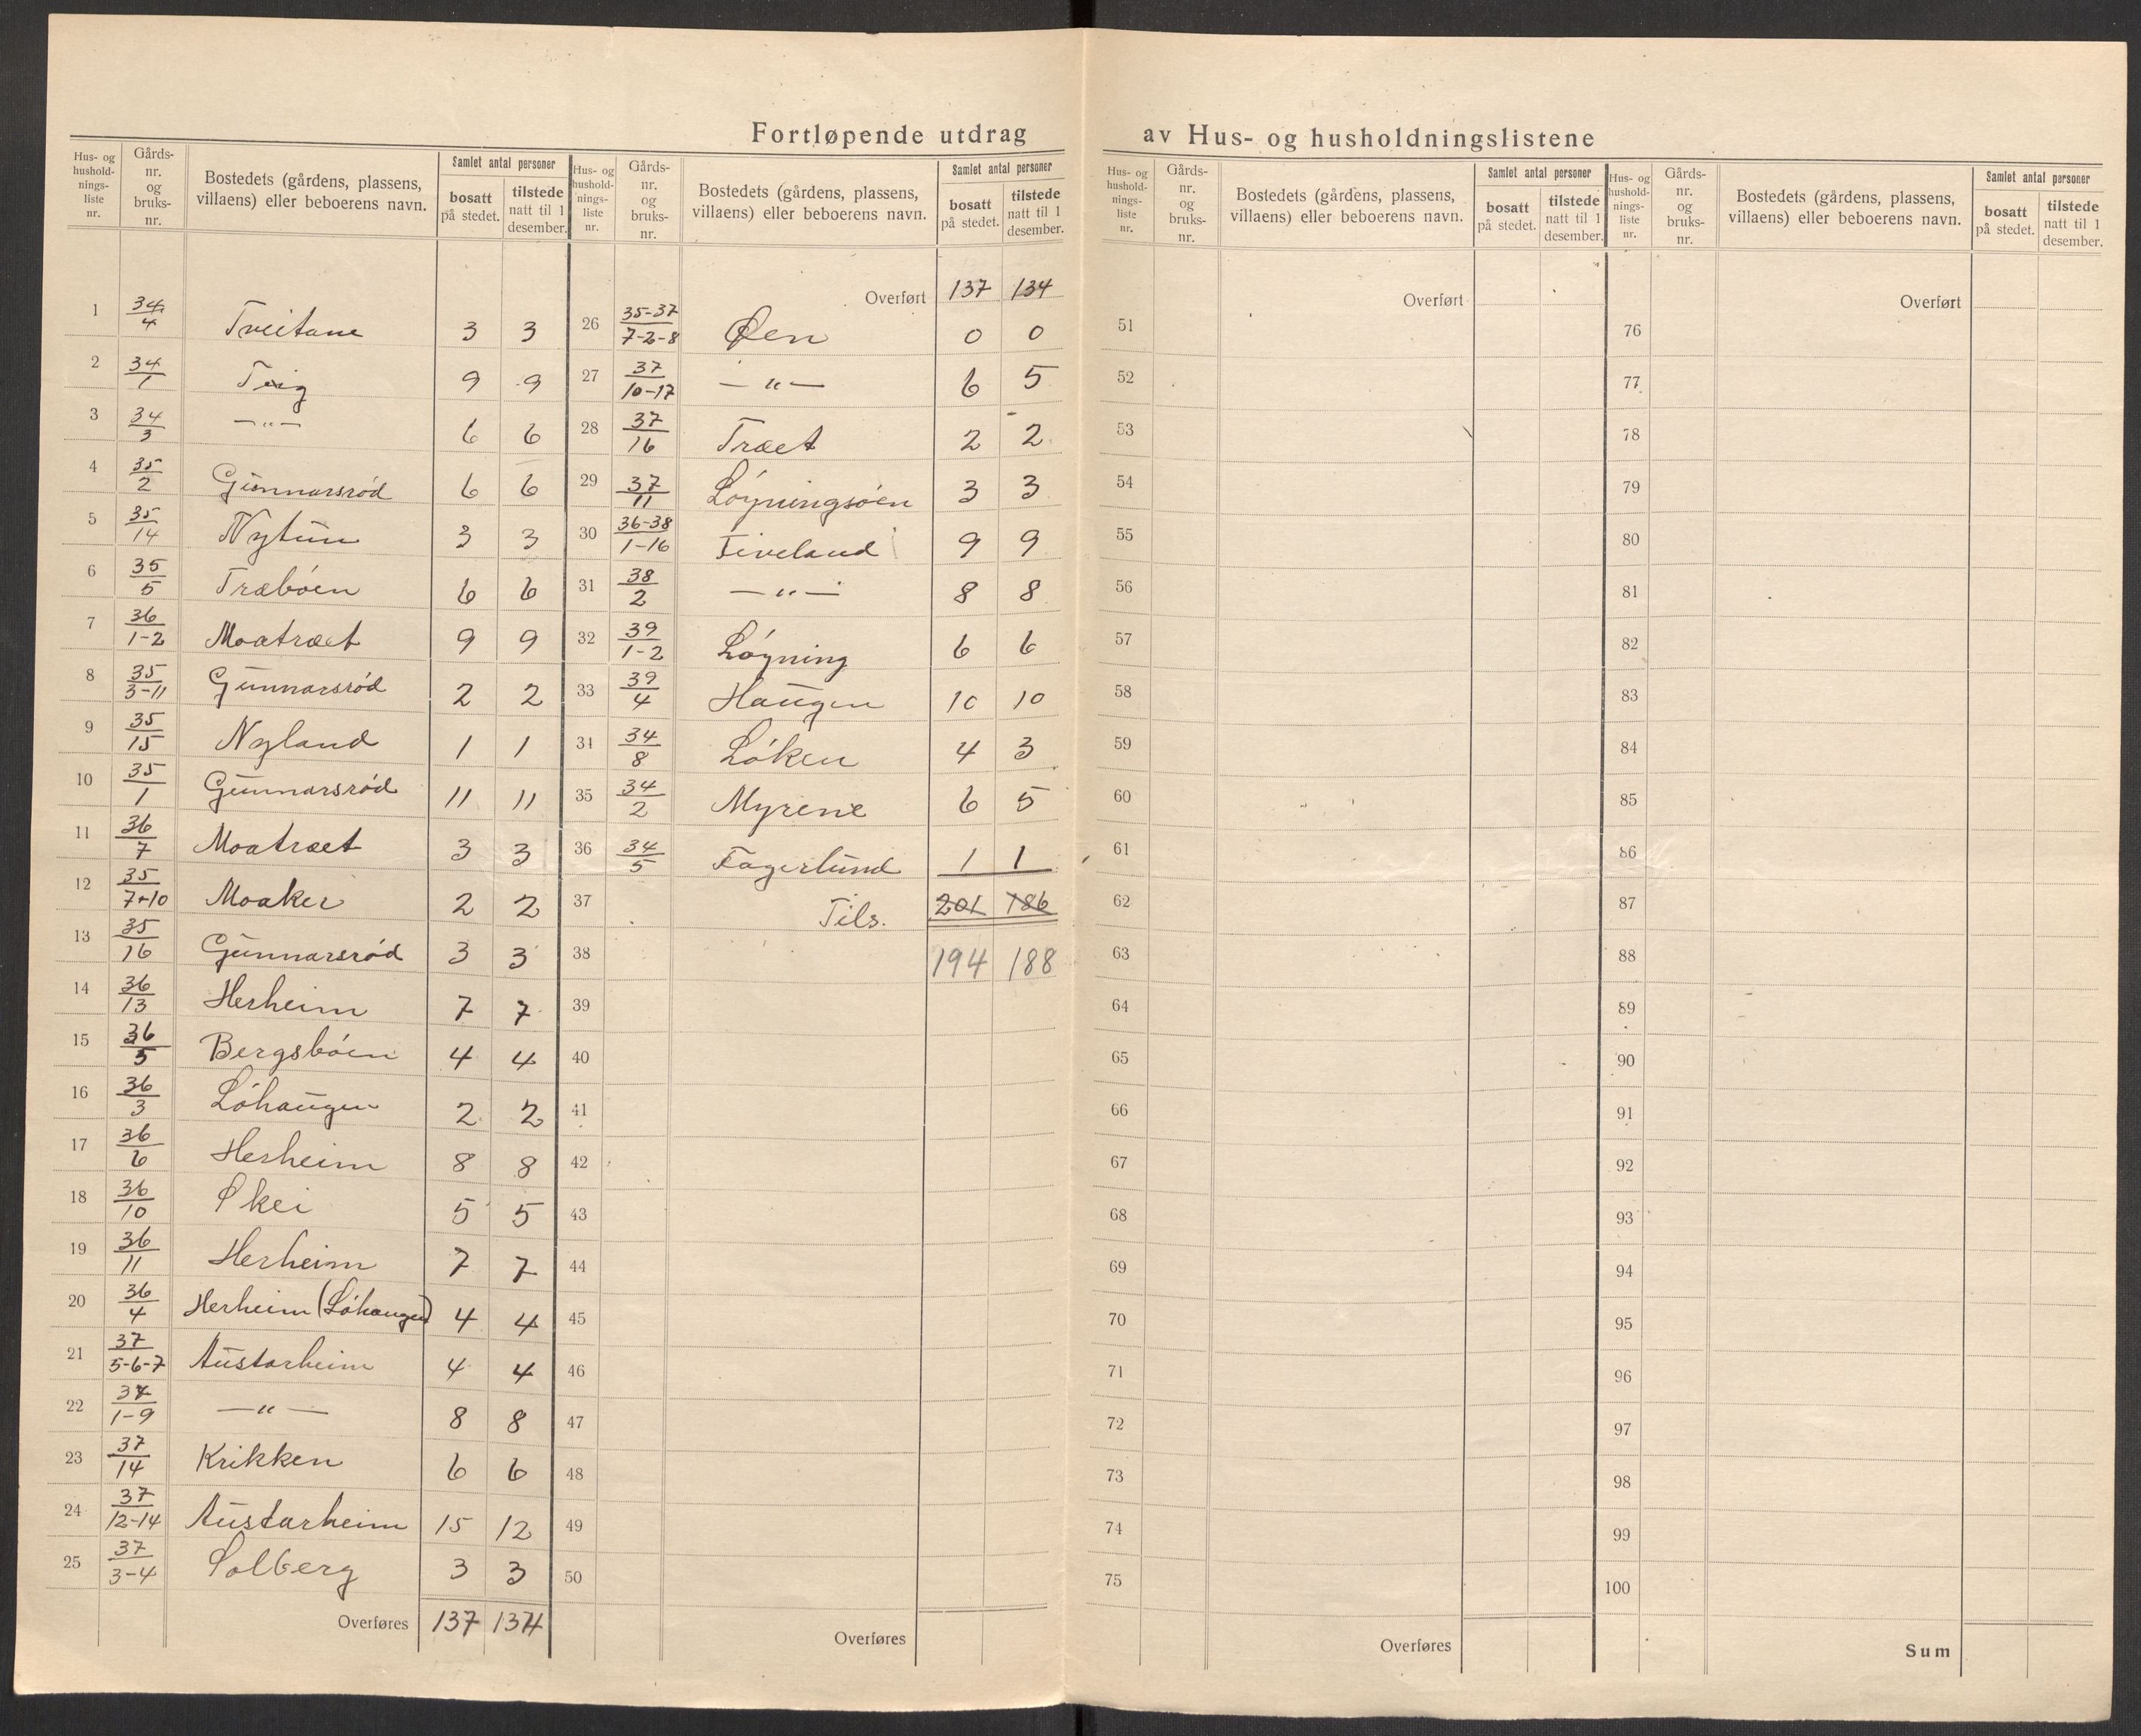 Fortløpende utdrag av Hus- og husholdningslistene
Hus- og hushold-nings-liste nr. | Gårds-nr. og bruks-nr. | Bostedets (gårdens, plassens, villaens) eller beboerens navn. | Samlet antal personer: bosatt på stedet. | tilstede natt til 1 desember.
1 34/4 Tveitane 3 3
2 34/1 Teig 9 9
3 34/3 —"— 6 6
4 35/2 Gunnarsrød 6 6
5 35/14 Nytun 3 3
6 35/5 Træbøen 6 6
7 36/1-2 Moatræet 9 9
8 35/3-11 Gunnarsrød 2 2
9 35/15 Nyland 1 1
10 35/1 Gunnarsrød 11 11
11 36/7 Moatræet 3 3
12 35/7+10 Moaker 2 2
13 35/16 Gunnarsrød 3 3
14 36/13 Herheim 7 7
15 36/5 Bergsbøen 4 4
16 36/3 Løhaugen 2 2
17 36/6 Herheim 8 8
18 36/10 Skei 5 5
19 36/11 Herheim 7 7
20 36/4 Herheim (Løhaugen) 4 4
21 37/5-6-7 Austarheim 4 4
22 37/1-9 —"— 8 8
23 37/14 Krikken 6 6
24 37/12-14 Austarheim 15 12
25 37/3-4 Solberg 3 3
Overføres 137 134
Hus- og hushold-nings-liste nr. | Gårds-nr. og bruks-nr. | Bostedets (gårdens, plassens, villaens) eller beboerens navn. | Samlet antal personer: bosatt på stedet. | tilstede natt til 1 desember.
Overført 137 134
26 35-37/7-2-8 Øen 0 0
27 37/10-17 —"— 6 5
28 37/16 Træet 2 2
29 37/11 Løyningsøen 3 3
30 36-38/1-16 Tiveland 9 9
31 38/2 —"— 8 8
32 39/1-2 Løyning 6 6
33 39/4 Haugen 10 10
34 34/8 Løken 4 3
35 34/2 Myrene 6 5
36 34/5 Fagerlund 1 1
37 Tils. 201 186
38 194 188
39
40
41
42
43
44
45
46
47
48
49
50
Overføres
Hus- og hushold-nings-liste nr. | Gårds-nr. og bruks-nr. | Bostedets (gårdens, plassens, villaens) eller beboerens navn. | Samlet antal personer: bosatt på stedet. | tilstede natt til 1 desember.
Overført
51
52
53
54
55
56
57
58
59
60
61
62
63
64
65
66
67
68
69
70
71
72
73
74
75
Overføres
Hus- og hushold-nings-liste nr. | Gårds-nr. og bruks-nr. | Bostedets (gårdens, plassens, villaens) eller beboerens navn. | Samlet antal personer: bosatt på stedet. | tilstede natt til 1 desember.
Overført
76
77
78
79
80
81
82
83
84
85
86
87
88
89
90
91
92
93
94
95
96
97
98
99
100
Sum